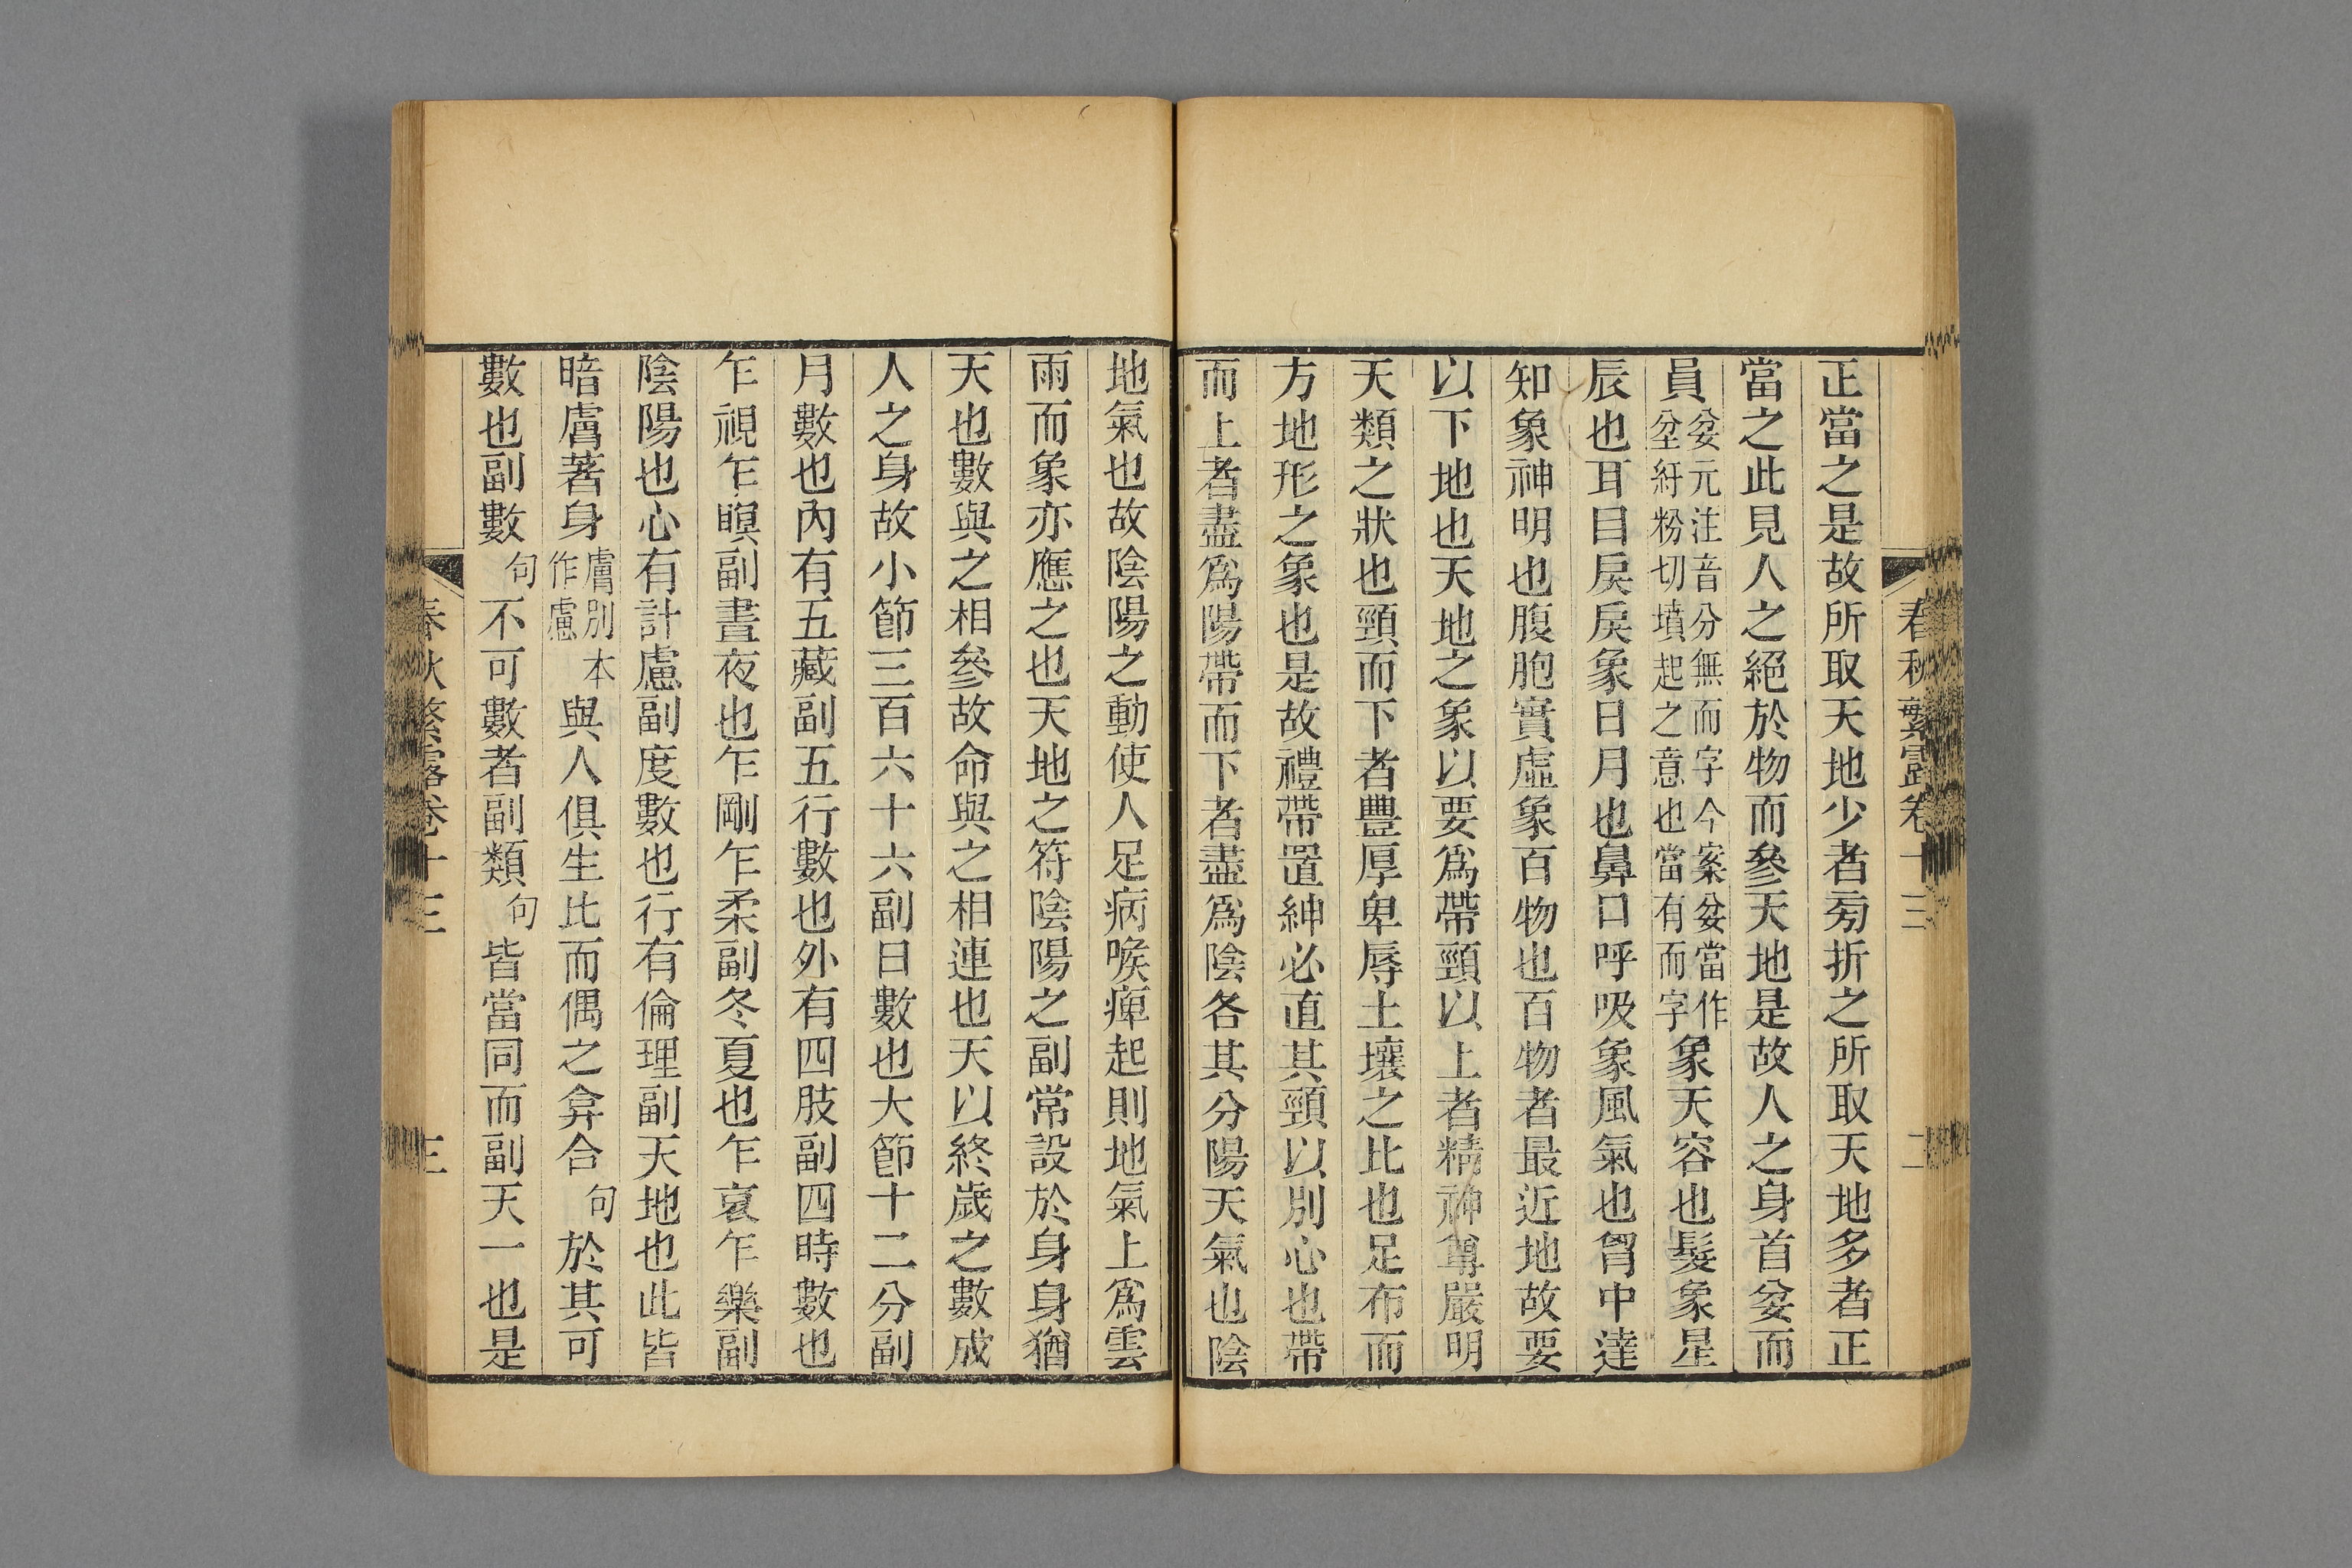 春秋繁露卷十三 二
正當之是故所取天地少者旁折之所取天地多者正
當之此見人之絕於物而參天地是故人之身首坌而
員坌元注音分無而字今案坌當作坌紆粉切墳起之意也當有而字象天容也髮象星
辰也耳目戾戾象日月也鼻口呼吸象風氣也胷中達
知象神明也腹胞實虛象百物也百物者最近地故要
以下地也天地之象以要爲帶頸以上者精神尊嚴明
天類之狀也頸而下者豐厚卑辱土壤之比也足布而
方地形之象也是故禮帶置紳必直其頸以別心也帶
而上者盡爲陽帶而下者盡爲陰各其分陽天氣也陰
地氣也故陰陽之動使人足病喉痺起則地氣上爲雲
雨而象亦應之也天地之符陰陽之副常設於身身猶
天也數與之相參故命與之相連也天以終歲之數成
人之身故小節三百六十六副日數也大節十二分副
月數也內有五藏副五行數也外有四肢副四時數也
乍視乍瞑副晝夜也乍剛乍柔副冬夏也乍哀乍樂副
陰陽也心有計慮副度數也行有倫理副天地也此皆
暗膚著身膚別本作慮與人俱生比而偶之弇合句於其可
數也副數句不可數者副類句皆當同而副天一也是
春秋繁露卷十三 三